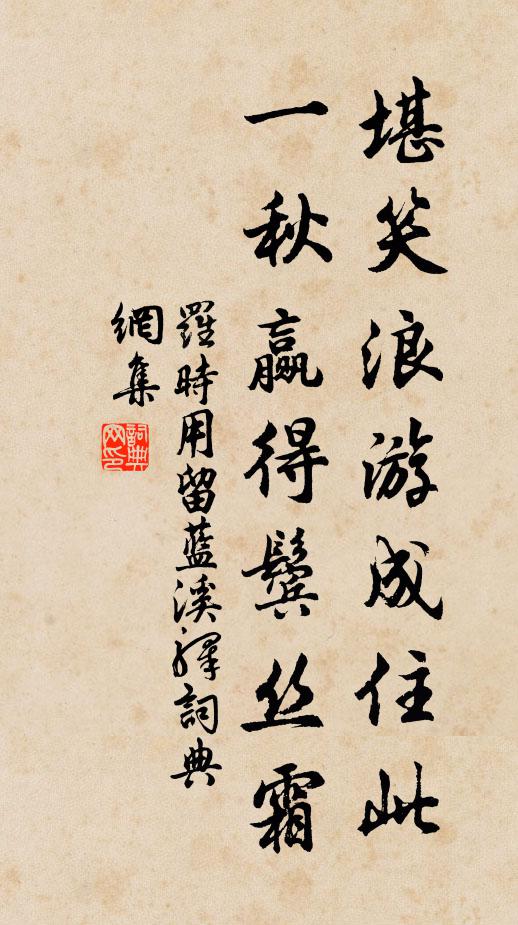 堪笑浪游成住此
一秋赢得鬓丝霜
羅時用留藍溪驛詞典
網集
詞典
网印